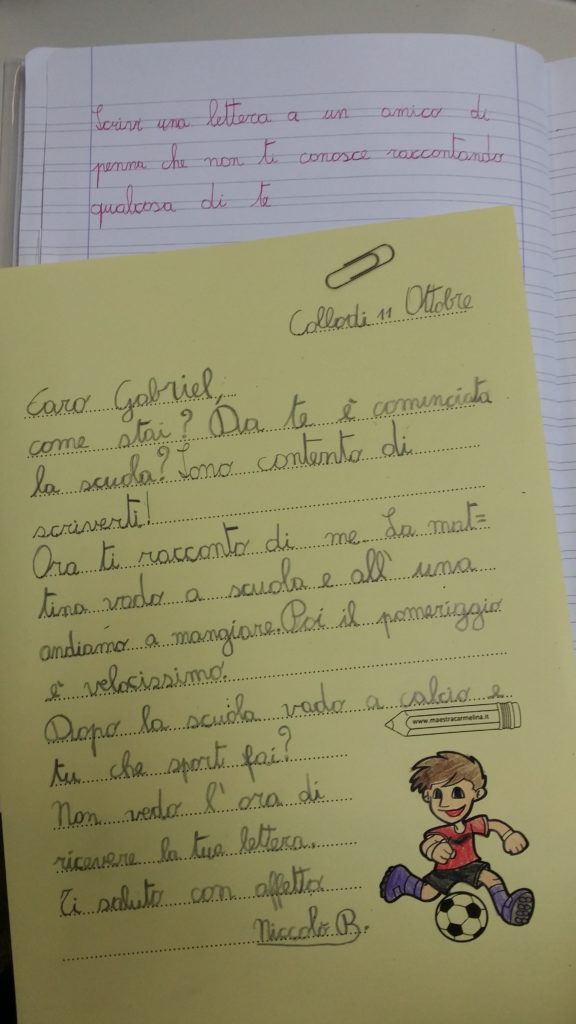 Scrivi una lettera a un amico di
penna che non ti conosce raccontando
qualcosa di te
Collodi 11 Ottobre
Caro Gabriel,
come stai? Da te è cominciata
la scuola? Sono contento di
scriverti!
Ora ti racconto di me. La mat=
tina vado a scuola e all' una
andiamo a mangiare. Poi il pomeriggio
è velocissimo.
Dopo la scuola vado a calcio e
www.maestracarmelina.it
tu che sport fai?
Non vedo l'ora di
ricevere la tua lettera.
Ti saluto con affetto
Niccolò B.